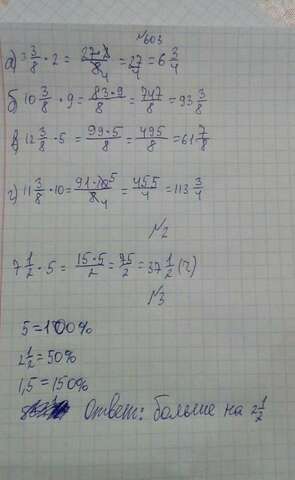 №603
а) 3 3/8 · 2 = 27·2/8 4 = 27/4 = 6 3/4
б) 10 3/8 · 9 = 83·9/8 = 747/8 = 93 3/8
в) 12 3/8 · 5 = 99·5/8 = 495/8 = 61 7/8
г) 11 3/8 · 10 = 91·10 5/8 4 = 455/4 = 113 3/4
№2
7 1/2 · 5 = 15·5/2 = 75/2 = 37 1/2 (г)
№3
5 = 100%
2 1/2 = 50%
1,5 = 150%
Ответ: больше на 2 1/2